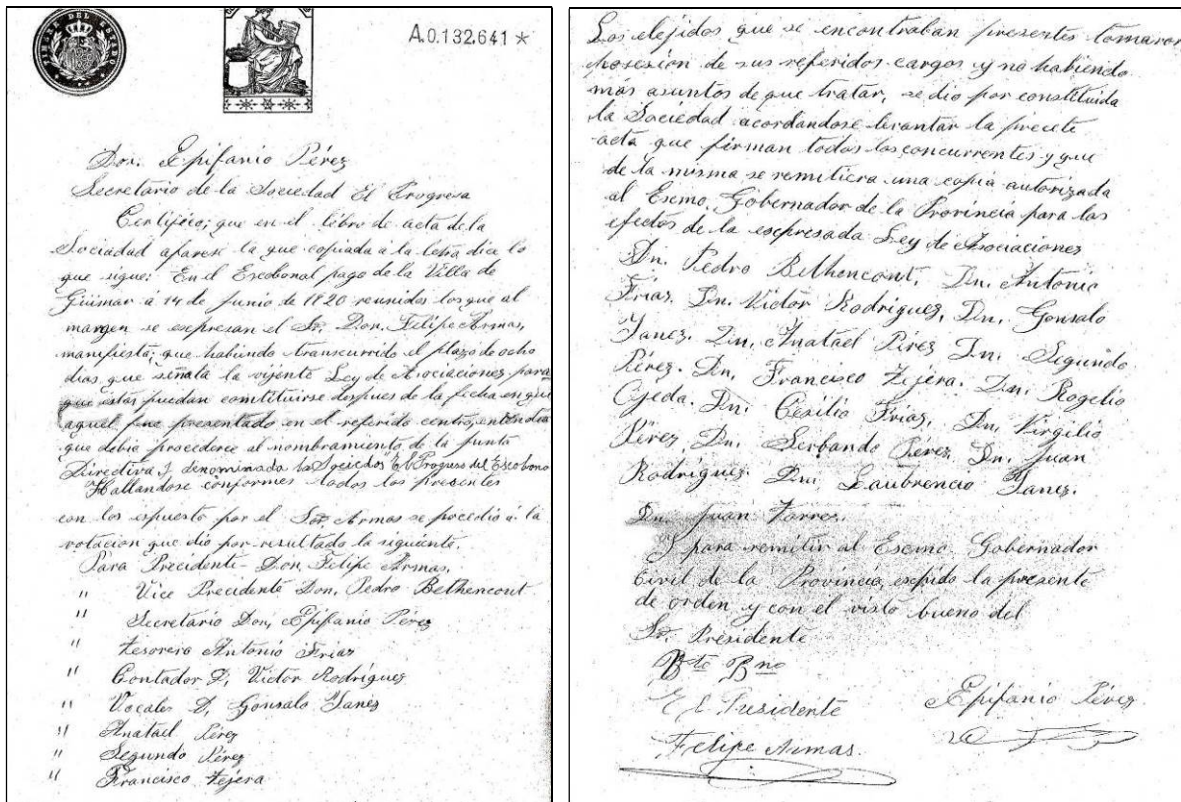 TIMBRE DEL ESTADO
A.0.132.641 *
Don. Epifanio Pérez
Secretario de la Sociedad El Progreso
Certifico; que en el libro de acta de la
Sociedad aparese la que copiada a la letra dice lo
que sigue: En el Escobonal pago de la Villa de
Güimar á 14 de Junio de 1820 reunidos los que al
margen se espresan el Sr. Don. Felipe Armas,
manifiesta; que habiendo transcurrido el plazo de ocho
dias, que señala la vijente Ley de Asociaciones para
que estas puedan constituirse despues de la fecha en que
aquel fue presentado en el referido centro, entendia
que debia procederce al nombramiento de la junta
Directiva y denominada la Sociedos "El Progreso del Escobono
Hallandose conformes todos los presentes
con los espuesto por el Sr. Armas se procedió á la
votacion que dio por resultado la siguiente.
Para Precidente - Don, Felipe Armas.
" Vice Precidente Don, Pedro Bethencourt
" Secretario Don, Epifanio Pérez
" Tesorero Antonio Frias
" Contador D, Victor Rodríguez
" Vocales D, Gonsalo Yanes
" Anatael Pérez
" Segundo Pérez
" Francisco Tejera
Los elejidos que se encontraban presertes tomaron
posesión de sus referidos cargos y no habiendo
más asuntos de que tratar, se dio por constituida
la Sociedad acordandose levantar la precete
acta que firman todos los concurrentes y que
de la misma se remitiera una copia autorizada
al Esemo. Gobernador de la Provincia para los
efectos de la espresada Ley de Asociaciones
Dn. Pedro Bethencout, Dn. Antonio
Frias. Dn. Victor Rodriguez, Dn. Gonsalo
Yanez. Dn, Anatael Pérez Dn. Segundo
Pérez. Dn, Francisco Tejera. Dn. Rogelio
Ojeda. Dn. Cesilio Frias, Dn. Virgilio
Pérez, Dn. Serbando Pérez, Dn. Juan
Rodríguez. Dn. Laubrencio Yanez.
Dn. Juan Torres.
Y para remitir al Esemo Gobernador
Civil de la Provincia, espido la presente
de orden y con el visto bueno del
Sr. Presidente
Bto Bno
El Presidente
Epifanio Pérez
Felipe Armas.